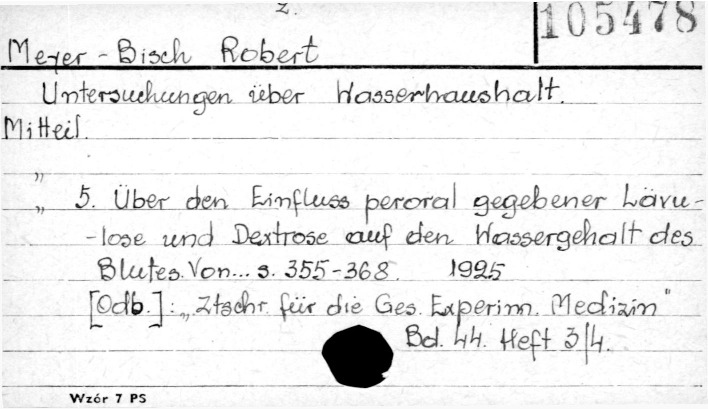 2.
105478
Meyer-Bisch Robert
Untersuchungen über Wasserhaushalt.
Mitteil.
"
" 5. Über den Einfluss peroral gegebener Lävu-
-lose und Dextrose auf den Wassergehalt des
Blutes. Von... s. 355-368. 1925
[Odb.]: „Ztschr. für die Ges. Experim. Medizin"
Bd. 44. Heft 3/4.
Wzór 7 PS